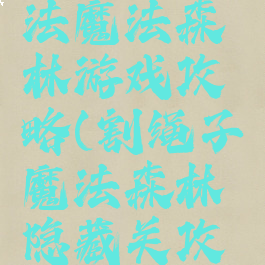 法魔法森
林游戏攻
略(割绳子
魔法森林
隐藏关攻